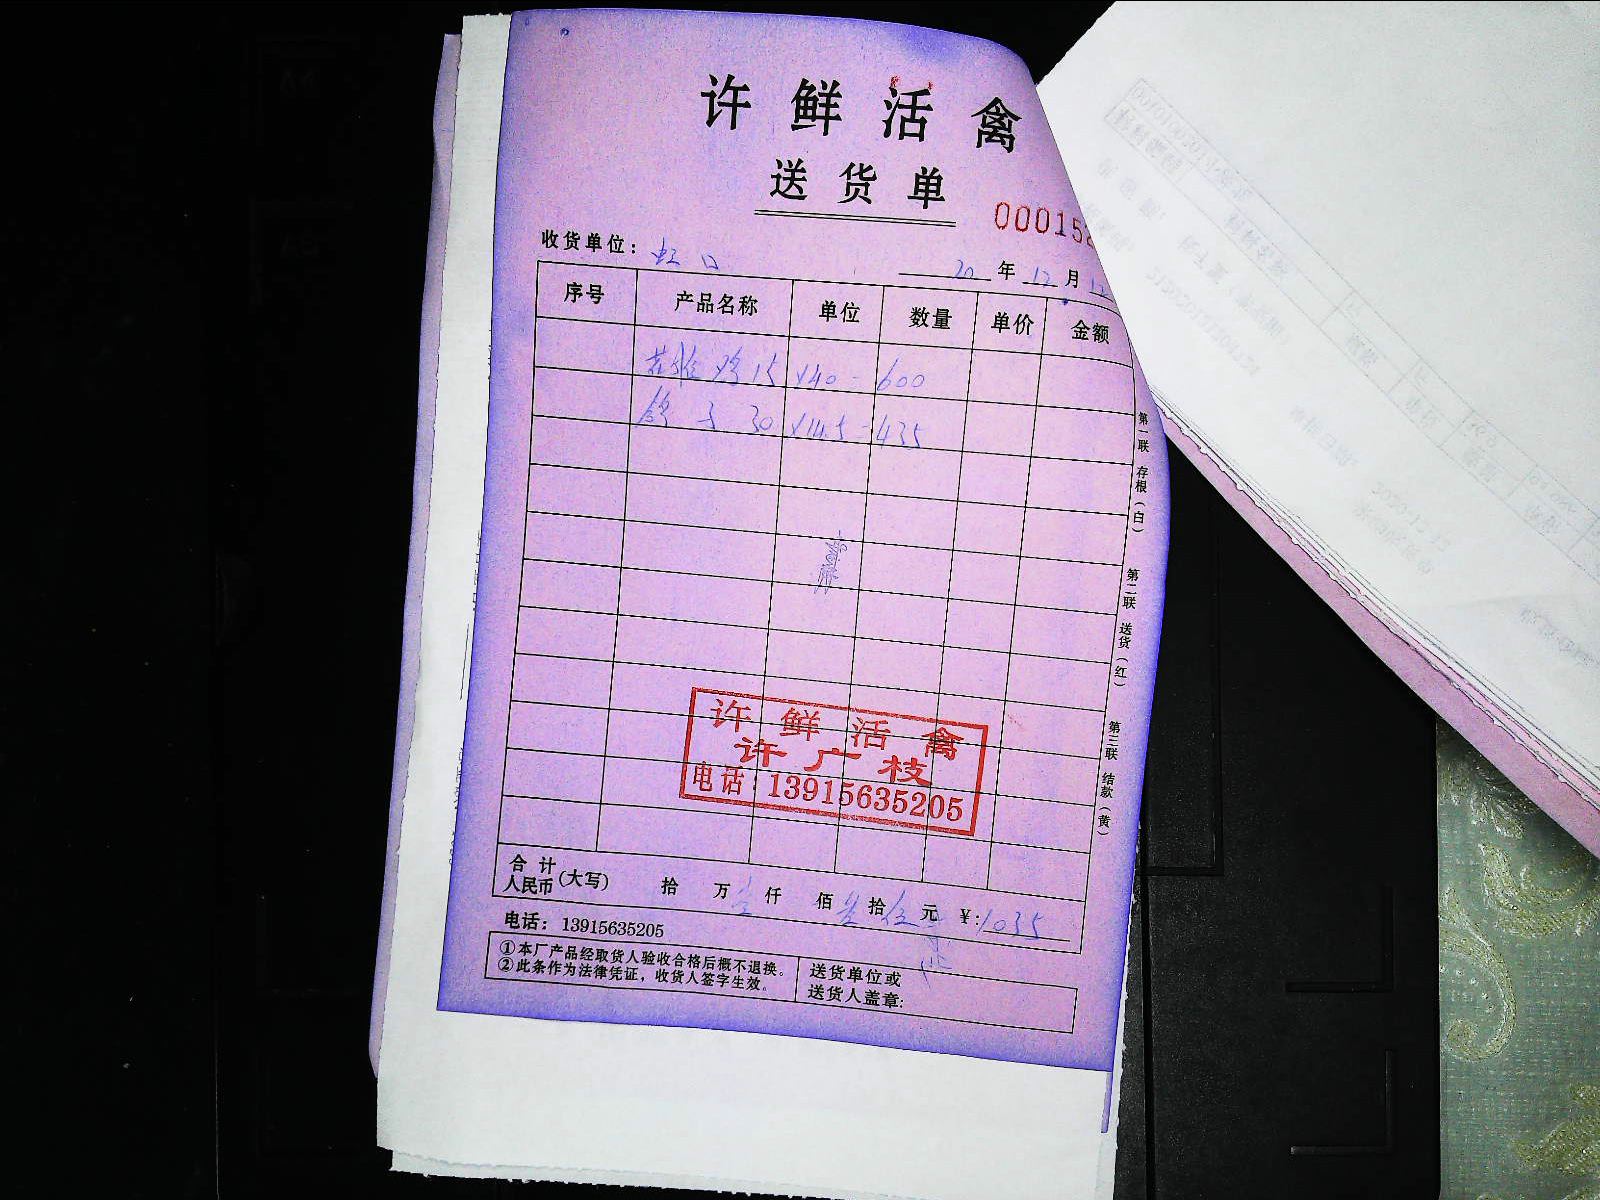 许鲜活禽
送货单
000152
收货单位：虹口
20 年 12 月 12
序号 产品名称 单位 数量 单价 金额
鸡 15 ×40 = 600
鸽子 30 ×14.5 = 435
第一联 存根（白） 第二联 送货（红） 第三联 结款（黄）
许鲜活禽
许广枝
电话：13915635205
合计人民币（大写） 拾 万 壹 仟 佰 叁 拾 伍 元 ¥：1035
电话：13915635205
①本厂产品经取货人验收合格后概不退换。
②此条作为法律凭证，收货人签字生效。
送货单位或
送货人盖章：